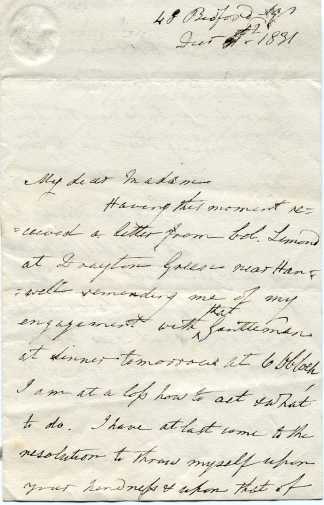 48 Bedford Sqr
1831
My dear Madam
Having this moment re-
-ceived a letter from Col.
at Drayton Green near Han-
-well reminding me of my
engagement with that Gentleman
at dinner tomorrow at 6 OClock
I am at a loss how to act & what
to do. I have at last come to the
resolution to throw myself upon
your kindness & upon that of